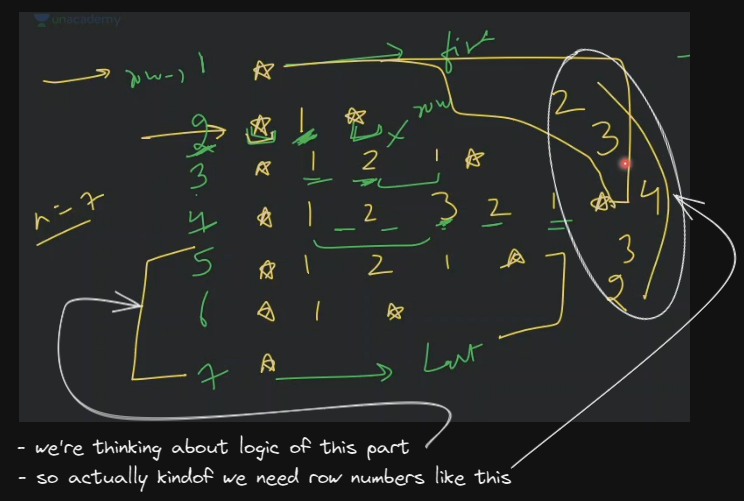 unacademy
row-1 ☆ → first
2 ☆ 1 ☆ x row
3 ☆ 1 2 1 ☆
n=7
4 ☆ 1 2 3 2 1 ☆
5 ☆ 1 2 1 ☆
6 ☆ 1 ☆
7 ☆ → Last
2
3
4
3
2
- we're thinking about logic of this part
- so actually kindof we need row numbers like this